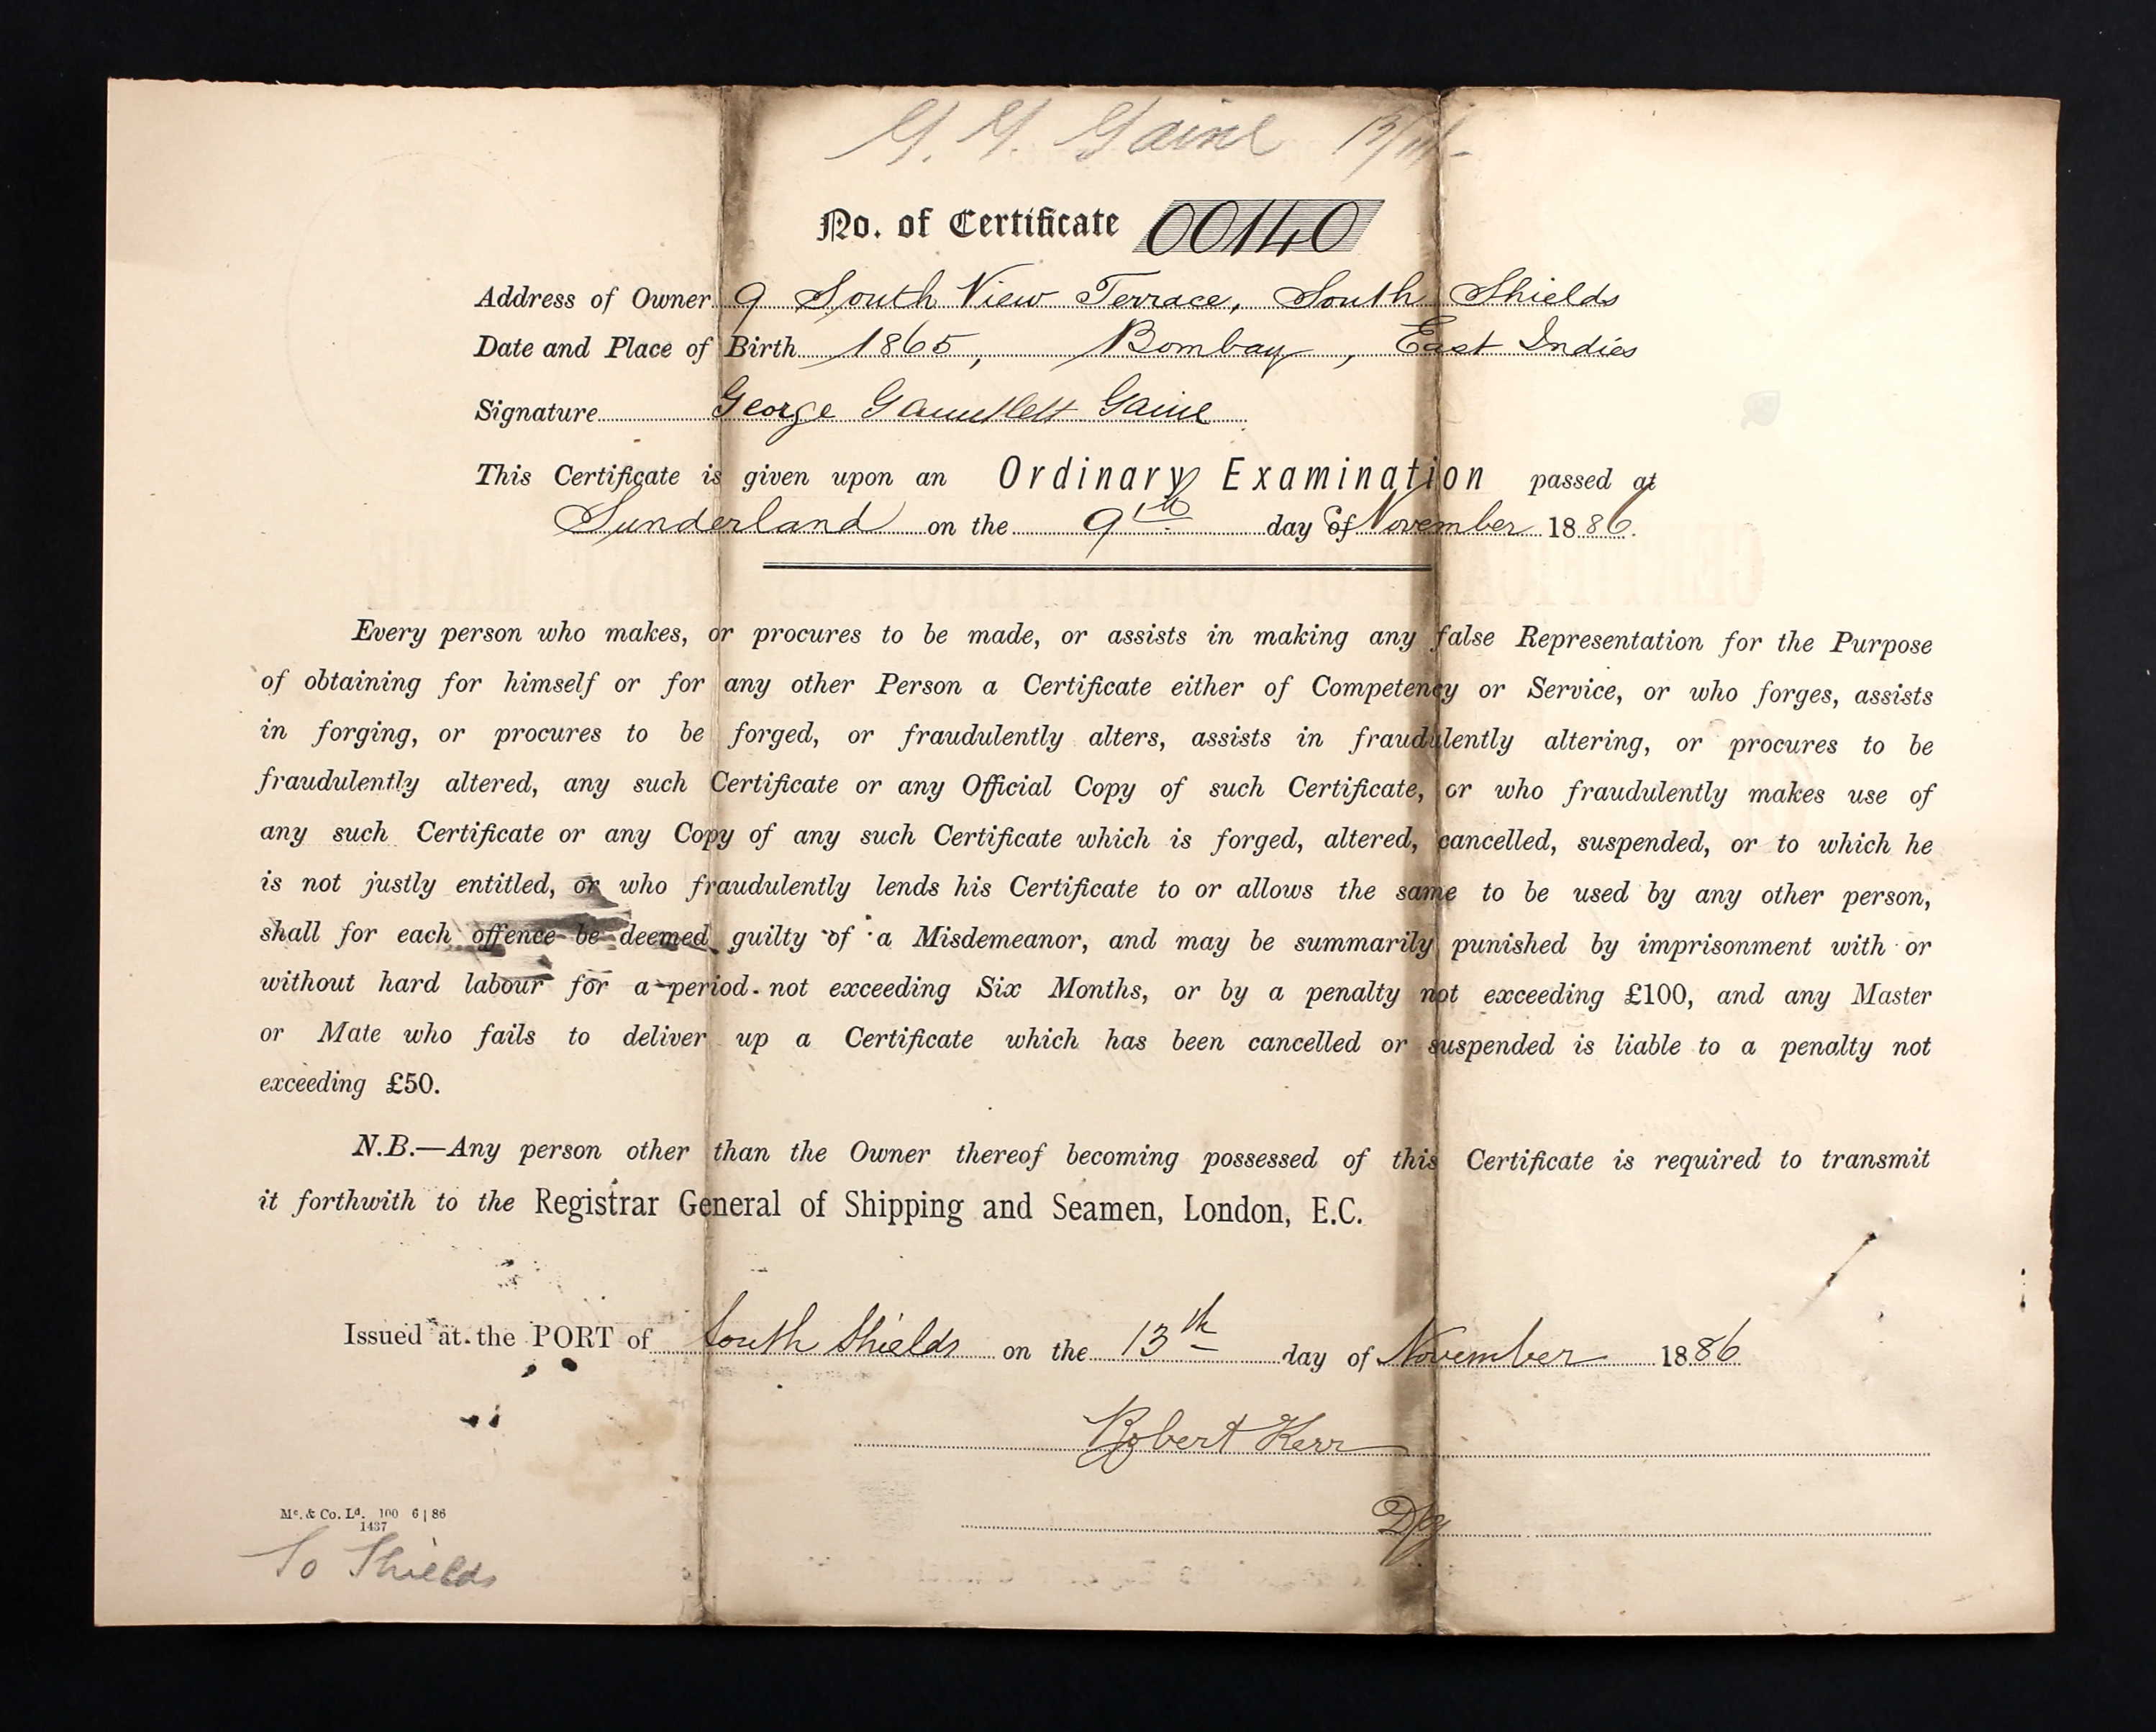 G. G. Gaine 13/11/-
No. of Certificate 00140
Address of Owner 9 South View Terrace, South Shields
Date and Place of Birth 1865, Bombay, East Indies
Signature George Gauntlett Gaine
This Certificate is given upon an Ordinary Examination passed at
Sunderland on the 9th day of November 1886.
Every person who makes, or procures to be made, or assists in making any false Representation for the Purpose
of obtaining for himself or for any other Person a Certificate either of Competency or Service, or who forges, assists
in forging, or procures to be forged, or fraudulently alters, assists in fraudulently altering, or procures to be
fraudulently altered, any such Certificate or any Official Copy of such Certificate, or who fraudulently makes use of
any such Certificate or any Copy of any such Certificate which is forged, altered, cancelled, suspended, or to which he
is not justly entitled, or who fraudulently lends his Certificate to or allows the same to be used by any other person,
shall for each offence be deemed guilty of a Misdemeanor, and may be summarily punished by imprisonment with or
without hard labour for a period not exceeding Six Months, or by a penalty not exceeding £100, and any Master
or Mate who fails to deliver up a Certificate which has been cancelled or suspended is liable to a penalty not
exceeding £50.
N.B.—Any person other than the Owner thereof becoming possessed of this Certificate is required to transmit
it forthwith to the Registrar General of Shipping and Seamen, London, E.C.
Issued at the PORT of South Shields on the 13th day of November 1886
Robert Kerr
Dpy
Mc. & Co. Ld. 100 6 | 86
1437
So Shields